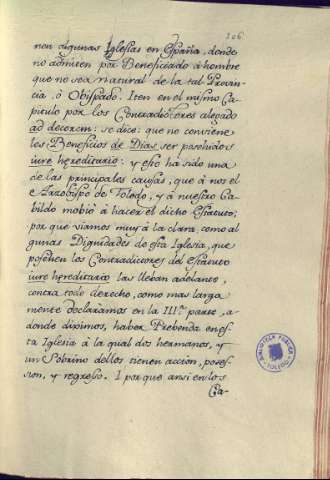 106
nen algunas Iglesias en España, donde
no admiten por Beneficiado à hombre
que no sea natural de la tal Provin-
cia, ò Obispado. Iten en el mismo Ca-
pitulo por los Contradictores alegado
ad decorem: se dice: que no conviene
los Beneficios de Dias ser poseìdos
iure hereditario: y esto hà sido una
de las principales causas, que à nos el
Arzobispo de Toledo, y à nuestro Ca-
bildo mobiò à hacer el dicho Estatuto;
por que viamos muy à la clara, como al
gunas Dignidades de esta Iglesia, que
poseen los Contradictores del Estatuto
iure hereditario las lleban adelante,
contra todo derecho, como mas larga
mente declaramos en la III.ª parte, a-
donde diximos, haber Prebenda en es-
ta Iglesia à la qual dos hermanos, y
un Sobrino dellos tienen accion, poses-
sion, y regreso. I por que ansi en los
Ca-
BIBLIOTECA PUBLICA
TOLEDO